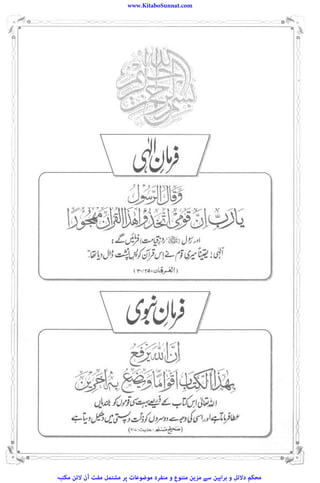 www.KitaboSunnat.com
بسم الله الرحمن الرحيم
فرمان الٰہی
وقال الرسول
يارب ان قومى اتخذوا هذا القرآن مهجورا
اور رسول (ﷺ روز قیامت) فرمائیں گے:
الٰہی! یقیناً میری قوم نے اس قرآن کو پس پشت ڈال دیا تھا۔
(الفرقان: ۲۵/۳۰)
فرمان نبوی
ان الله يرفع
بهذا الكتاب اقواما ويضع به آخرين
اللہ تعالیٰ اس کتاب کے ذریعے بہت سی قوموں کو بلندیاں
عطا فرماتا ہے اور اسی کی وجہ سے دوسروں کو ذلت و پستی میں دھکیل دیتا ہے
(صحیح مسلم، حدیث:
محکم دلائل و براہین سے مزین متنوع و منفرد موضوعات پر مشتمل مفت آن لائن مکتبہ